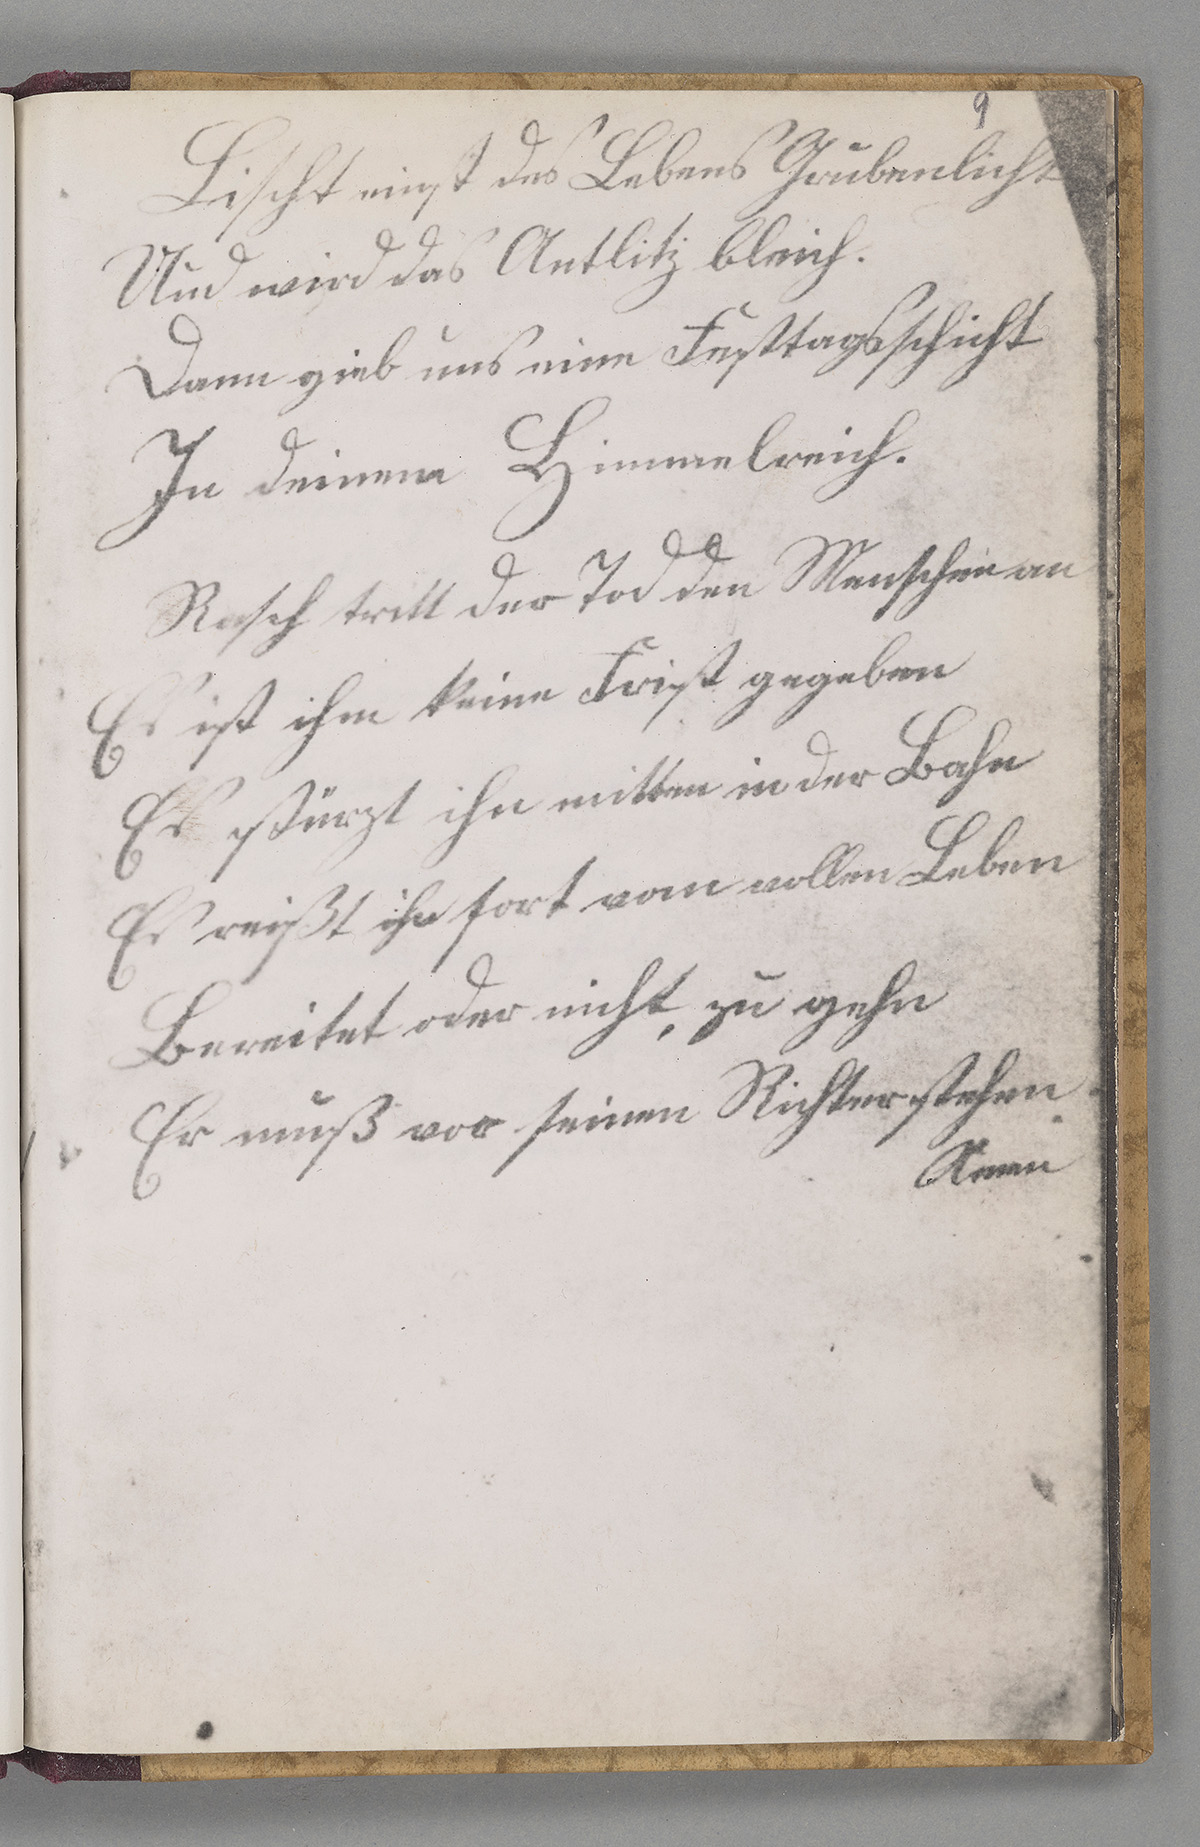 9
Lischt einst des Lebens Grubenlicht
Und wird das Antlitz bleich.
Dann gieb uns eine Festtagsschicht
In deinem Himmelreich.
Rasch tritt der Tod den Menschen an
Es ist ihm keine Frist gegeben
Es stürzt ihn mitten in der Bahn
Es reißt ihn fort vom vollen Leben
Bereitet oder nicht, zu gehn
Er muß vor seinen Richter stehen.
Amen